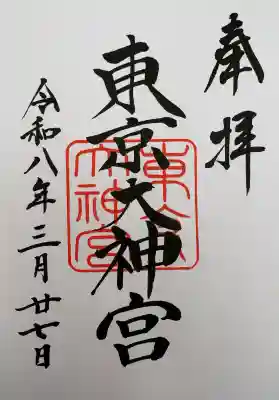 奉拝
東京大神宮
令和八年三月廿七日
東京大神宮